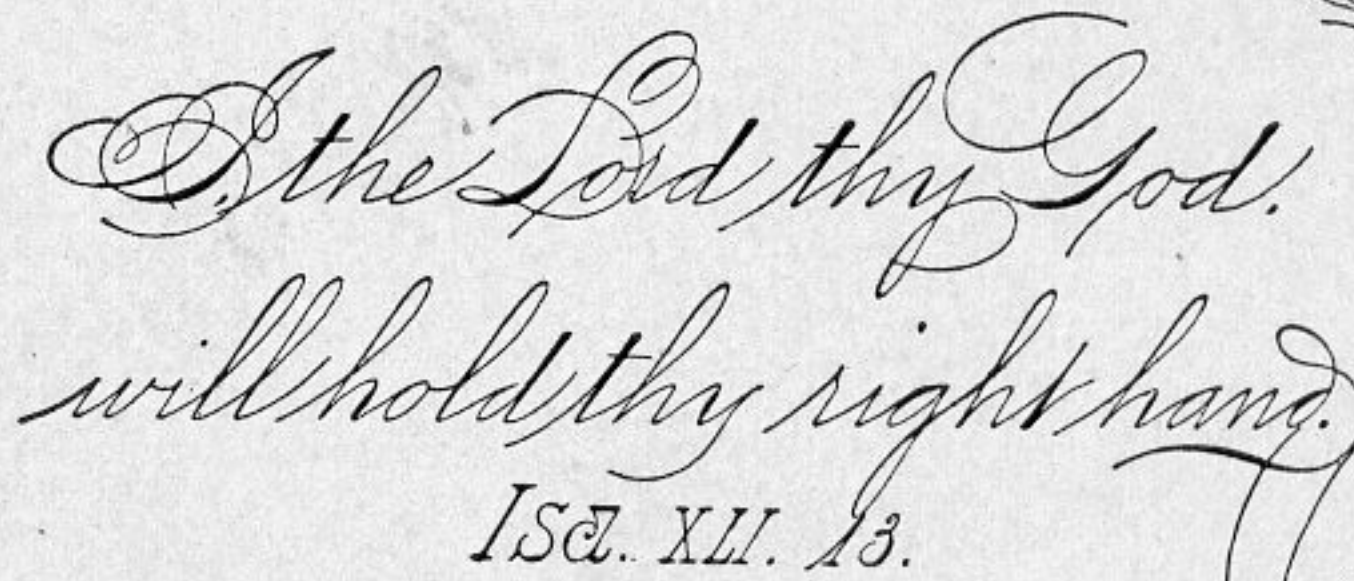 I the Lord thy God.
will hold thy right hand.
Isa. XLI. 13.